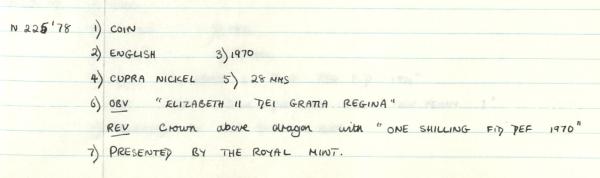 N 225 '78 1) COIN
2) ENGLISH 3) 1970
4) CUPRA NICKEL 5) 28 MMS
6) OBV "ELIZABETH II DEI GRATIA REGINA"
REV Crown above dragon with "ONE SHILLING FID DEF 1970"
7) PRESENTED BY THE ROYAL MINT.